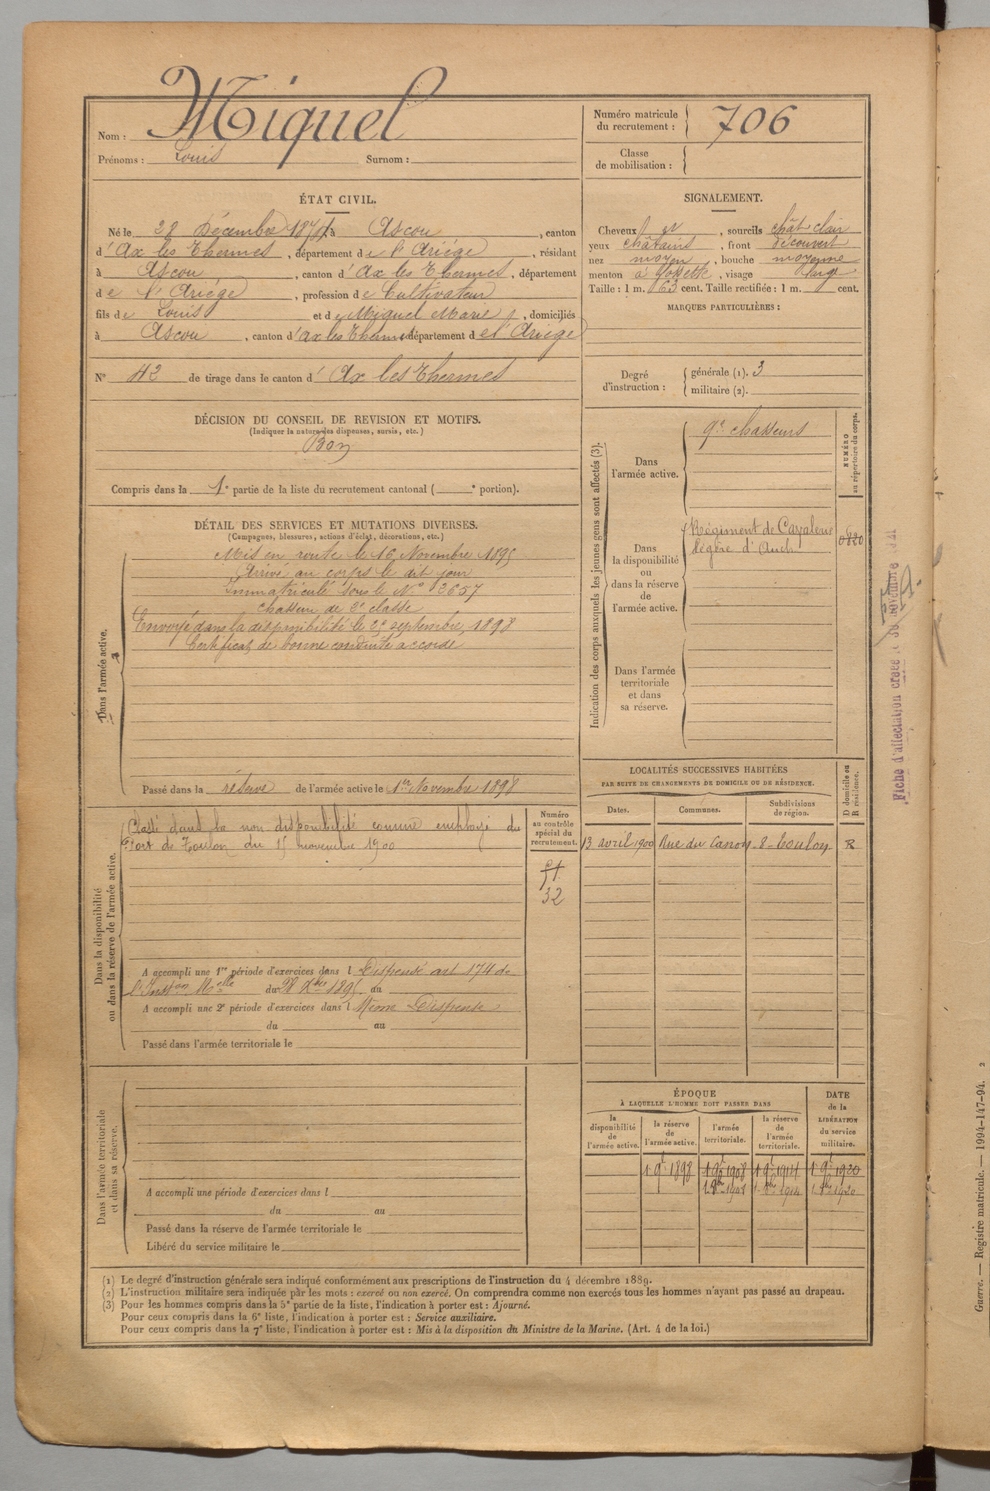 Nom : Miquel
Prénoms : Louis Surnom :
Numéro matricule du recrutement : 706
Classe de mobilisation :
ÉTAT CIVIL.
Né le 28 Décembre à Ascou, canton
d'Ax les Thermes, département de l'Ariége, résidant
à Ascou, canton d'Ax les Thermes, département
de l'Ariége, profession de Cultivateur
fils de Louis et de Miquel Marie, domiciliés
à Ascou, canton d'ax les Thermes département de l'Ariége
N° 42 de tirage dans le canton d'Ax les Thermes
SIGNALEMENT.
Cheveux, sourcils chât clair
yeux châtains, front découvert
nez moyen, bouche moyenne
menton à fossette, visage large
Taille : 1 m. 63 cent. Taille rectifiée : 1 m. cent.
MARQUES PARTICULIÈRES :
Degré d'instruction : générale (1). 3
militaire (2).
DÉCISION DU CONSEIL DE REVISION ET MOTIFS.
(Indiquer la nature des dispenses, sursis, etc.)
Bon
Compris dans la 1e partie de la liste du recrutement cantonal ( e portion).
DÉTAIL DES SERVICES ET MUTATIONS DIVERSES.
(Campagnes, blessures, actions d'éclat, décorations, etc.)
Dans l'armée active.
Mis en route le 16 Novembre 1895
Arrivé au corps le dit jour
Immatriculé sous le N° 3657
chasseur de 2e classe
Envoyé dans la disponibilité le septembre 1898
Certificat de bonne conduite accordé
Passé dans la réserve de l'armée active le 1er Novembre 1898
Indication des corps auxquels les jeunes gens sont affectés (3).
NUMÉRO au répertoire du corps.
Dans l'armée active.
9e chasseurs
Dans la disponibilité ou dans la réserve de l'armée active.
Régiment de Cavalerie
légère d'Auch
0820
Dans l'armée territoriale et dans sa réserve.
Fiche d'affectation créée le 30 novembre
Dans la disponibilité ou dans la réserve de l'armée active.
Classé dans la non disponibilité comme employé du
Port de Toulon du 15 novembre 1900
Numéro au contrôle spécial du recrutement.
32
A accompli une 1re période d'exercices dans l Dispensé art 174 de
l'Inston Melle du 28 Xbre 1895 au
A accompli une 2e période d'exercices dans l Meme Dispense
du au
Passé dans l'armée territoriale le
LOCALITÉS SUCCESSIVES HABITÉES
PAR SUITE DE CHANGEMENTS DE DOMICILE OU DE RÉSIDENCE.
Dates. Communes. Subdivisions de région. D domicile ou R résidence.
13 avril 1900 Rue du Canon 8 Toulon R
Dans l'armée territoriale et dans sa réserve.
A accompli une période d'exercices dans l
du au
Passé dans la réserve de l'armée territoriale le
Libéré du service militaire le
ÉPOQUE
À LAQUELLE L'HOMME DOIT PASSER DANS
DATE de la LIBÉRATION du service militaire.
la disponibilité de l'armée active. la réserve de l'armée active. l'armée territoriale. la réserve de l'armée territoriale.
1 9e 1898 1 9e 1908 1 9e 1914 1 9e 1920
1 8e 1908 1 8e 1914 1 8e 1920
(1) Le degré d'instruction générale sera indiqué conformément aux prescriptions de l'instruction du 4 décembre 1889.
(2) L'instruction militaire sera indiquée par les mots : exercé ou non exercé. On comprendra comme non exercés tous les hommes n'ayant pas passé au drapeau.
(3) Pour les hommes compris dans la 5e partie de la liste, l'indication à porter est : Ajourné.
Pour ceux compris dans la 6e liste, l'indication à porter est : Service auxiliaire.
Pour ceux compris dans la 7e liste, l'indication à porter est : Mis à la disposition du Ministre de la Marine. (Art. 4 de la loi.)
Guerre. — Registre matricule. — 1994-147-94. 2